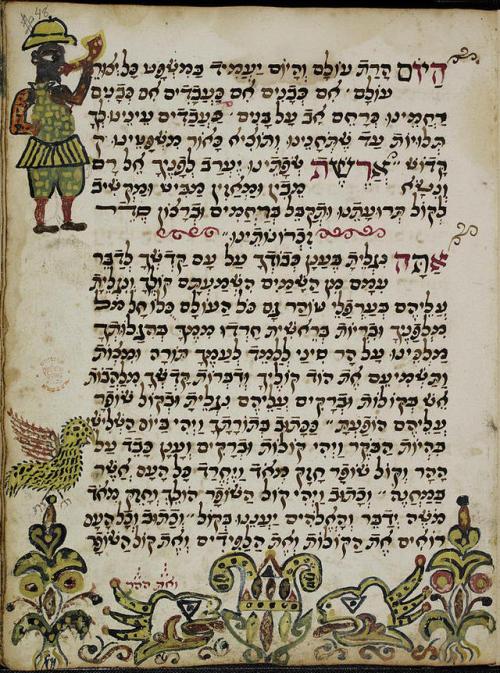 48
היום הרת עולם והיום יעמיד במשפט כל יצור
עולם · אם כבנים אם כעבדים אם כבנים
רחמינו כרחם אב על בנים · כעבדים עינינו לך
תלויות עד שתחנינו ותוציא כאור משפטינו
קדוש״ ארשת שפתינו יערב לפניך אל רם
ונישא מבין ומאזין מביט ומקשיב
לקול תרועתנו ותקבל ברחמים וברצון סדר
זכרונותינו״
אתה נגלית בענן כבודך על עם קדשך לדבר
עמם מן השמים השמעתם קולך ונגלית
עליהם בערפלי טוהר גם כל העולם כלו חל
מלפניך ובריות בראשית חרדו ממך בהגלותך
מלכינו על הר סיני ללמד לעמך תורה ומצות
ותשמיעם את הוד קוליך ודברות קדשך מלהבות
אש בקולות וברקים עליהם נגלית ובקול שופר
עליהם הופעת״ ככתוב בתורתך ויהי ביום השלישי
בהיות הבקר ויהי קולות וברקים וענן כבד על
ההר וקול שופר חזק מאד ויחרד כל העם אשר
במחנה״ וכתוב ויהי קול השופר הולך וחזק מאד
משה ידבר והאלהים יעננו בקול״ וכתוב וכל העם
רואים את הקולות ואת הלפידים ואת קול השופר
ואת ההר